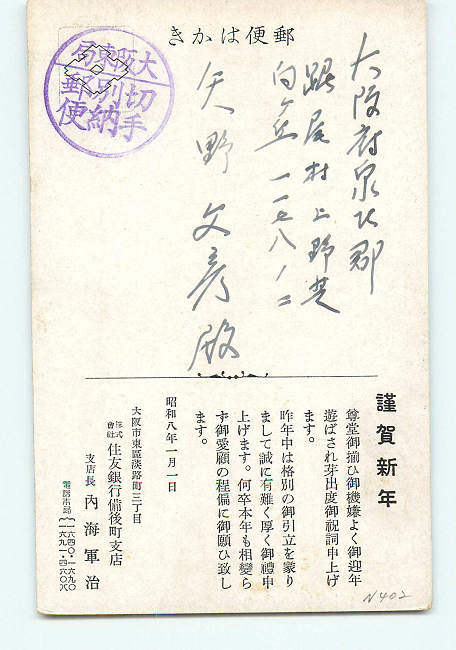 郵便はかき
大阪東局
切手別納
郵便
大阪府泉北郡
踞尾村上野芝
向丘一一七八ノ二
矢野文彦殿
謹賀新年
尊堂御揃ひ御機嫌よく御迎年
遊ばされ芽出度御祝詞申上げ
ます。
昨年中は格別の御引立を蒙り
まして誠に有難く厚く御禮申
上げます。何卒本年も相變ら
ず御愛顧の程偏に御願ひ致し
ます。
昭和八年一月一日
大阪市東區淡路町三丁目
株式會社 住友銀行備後町支店
支店長 內海軍治
電話本局
一六四〇・一六九〇
N402